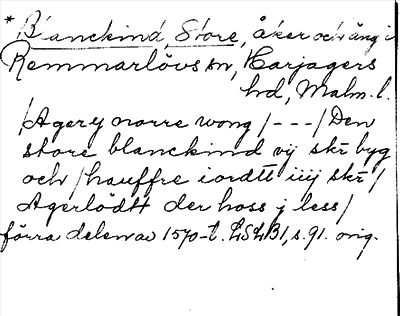 * Blanckind, Store, åker och äng i
Remmarlövs sn, Harjagers
hd, Malm. l.
/Agerÿ norre wong/ - - - /Den
store blanckind vij skr byg
och/hauffre iordtt iiij skr/
Agerlödtt der hoss j less/
förra delen av 1570-t. LSLB1, s. 91. orig.